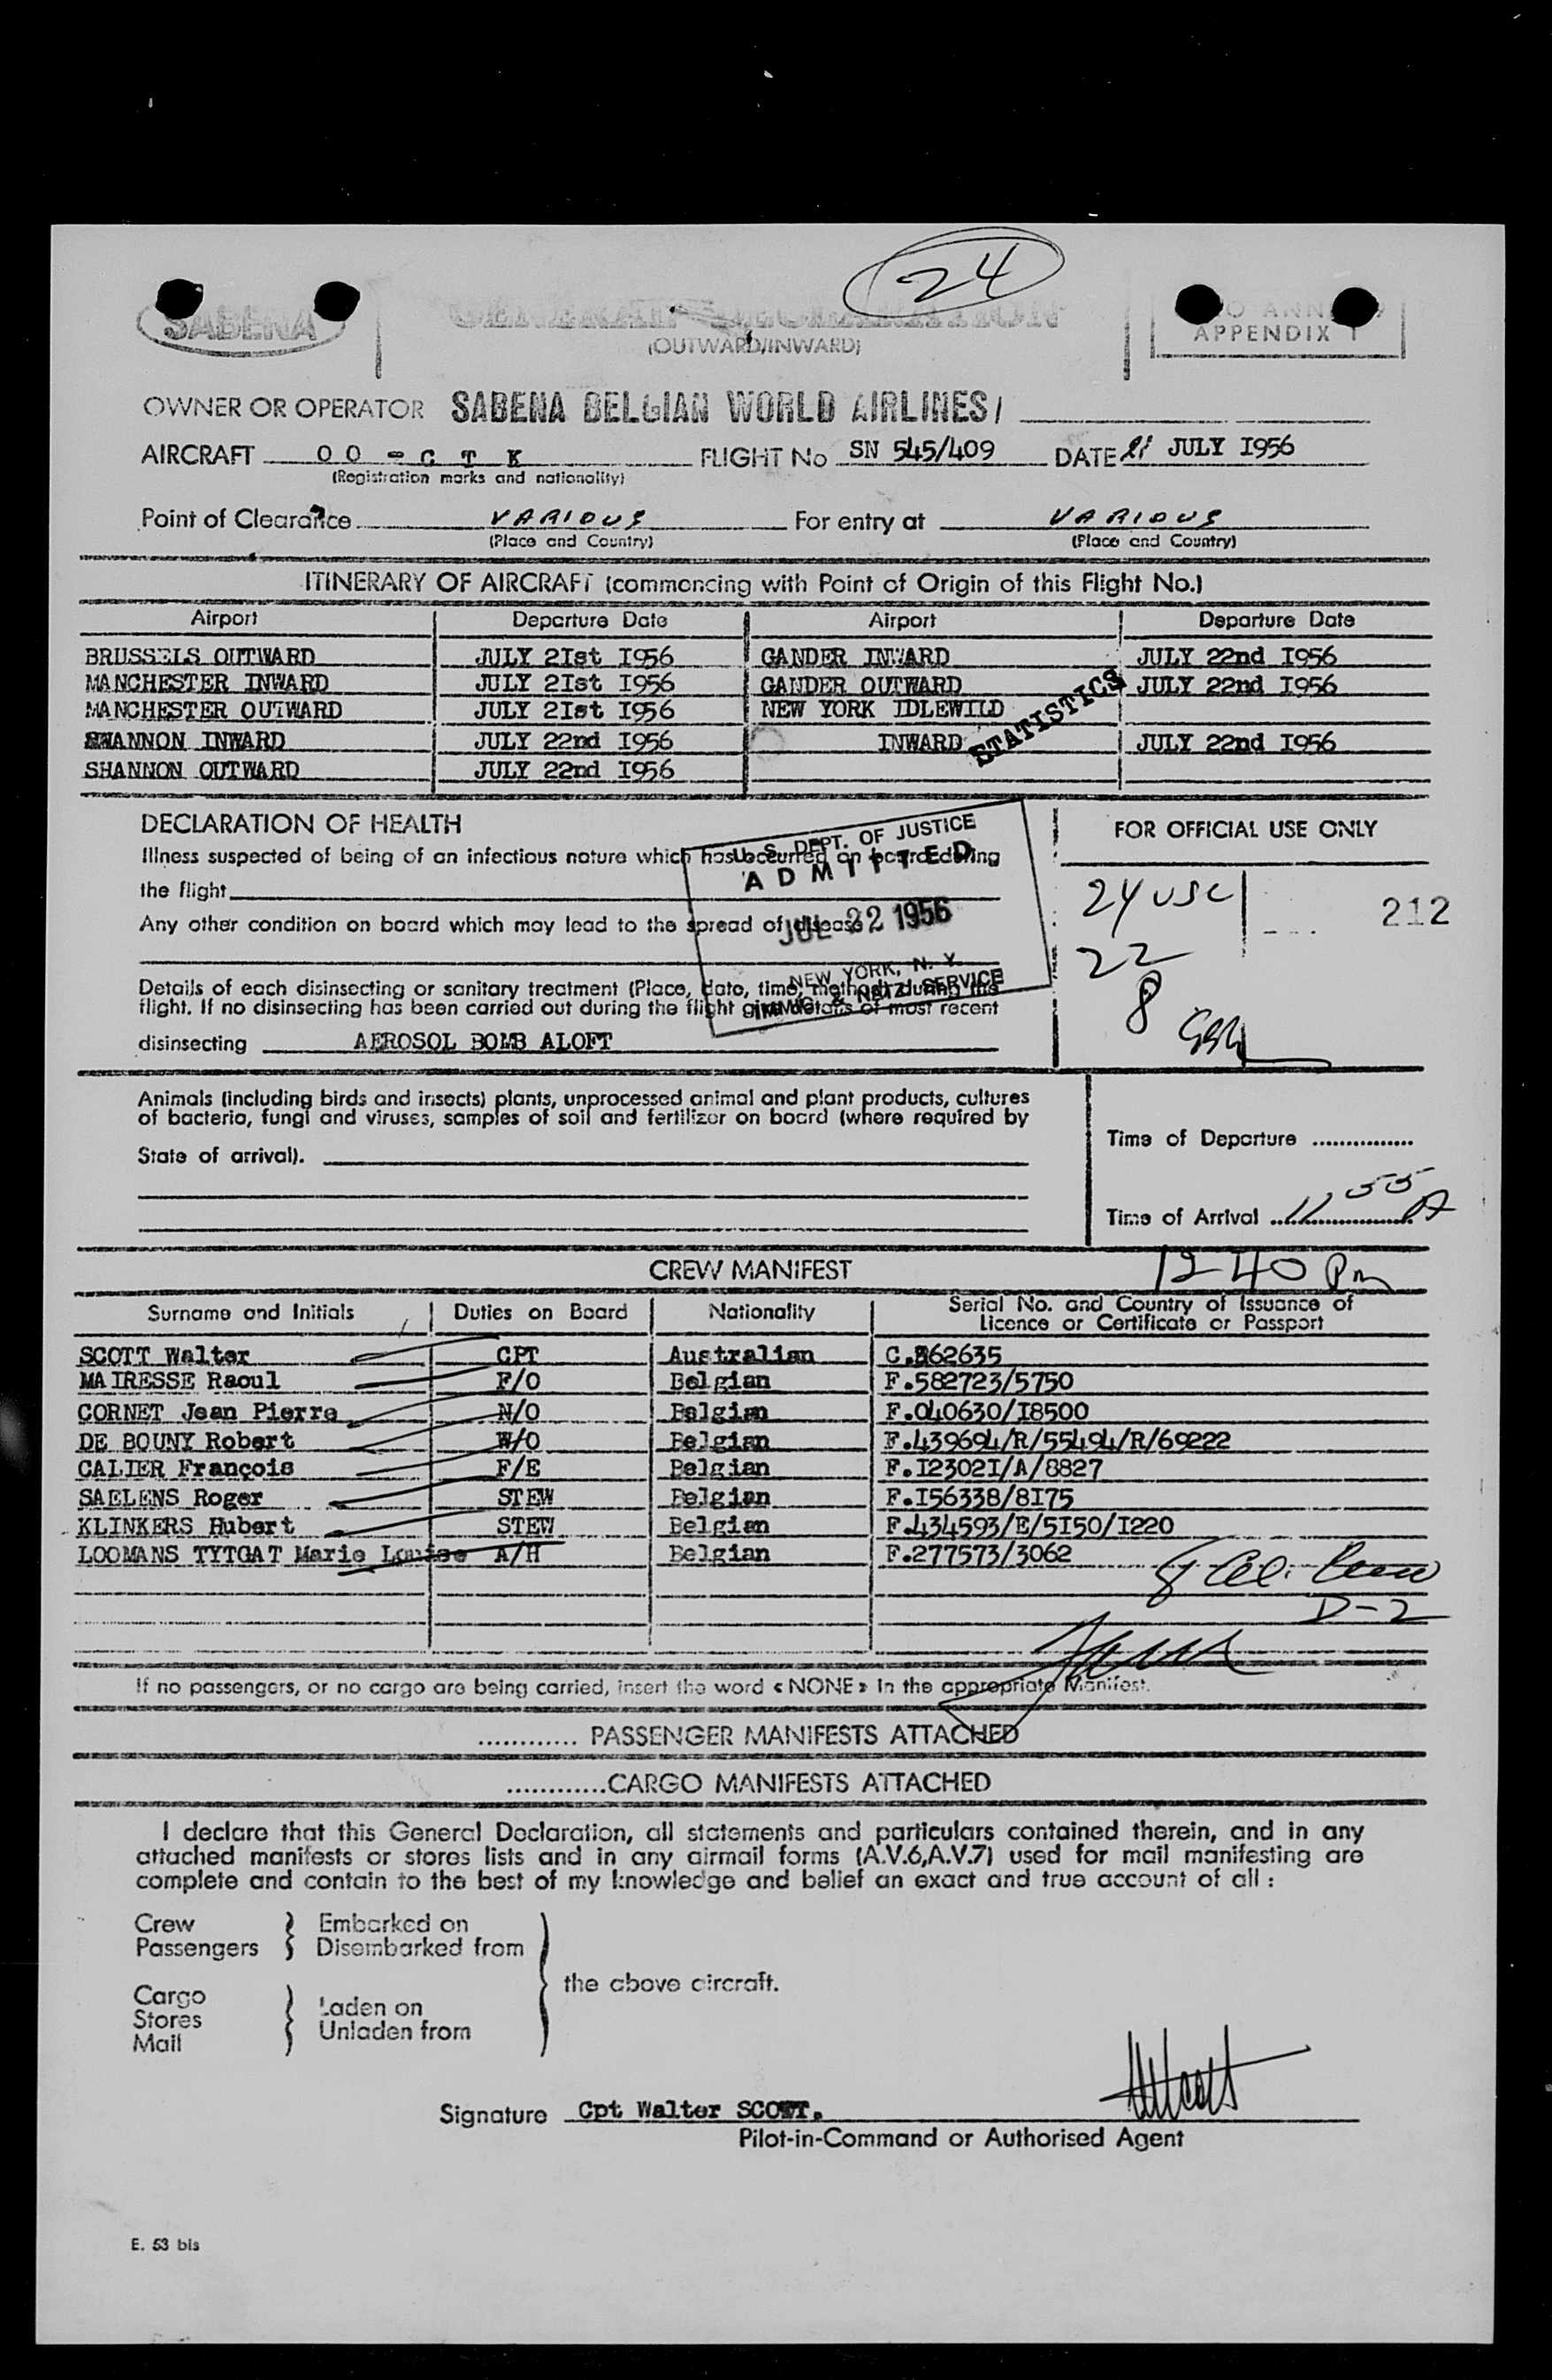 24
SABENA
GENERAL DECLARATION
(OUTWARD/INWARD)
APPENDIX 1
OWNER OR OPERATOR SABENA BELGIAN WORLD AIRLINES/
AIRCRAFT OO - C T K FLIGHT No SN 545/409 DATE 21 JULY I956
(Registration marks and nationality)
Point of Clearance VARIOUS For entry at VARIOUS
(Place and Country) (Place and Country)
ITINERARY OF AIRCRAFT (commencing with Point of Origin of this Flight No.)
Airport Departure Date Airport Departure Date
BRUSSELS OUTWARD JULY 2Ist I956 GANDER INWARD JULY 22nd I956
MANCHESTER INWARD JULY 2Ist I956 GANDER OUTWARD JULY 22nd I956
MANCHESTER OUTWARD JULY 2Ist I956 NEW YORK IDLEWILD
SHANNON INWARD JULY 22nd I956 INWARD JULY 22nd I956
SHANNON OUTWARD JULY 22nd I956
STATISTICS
DECLARATION OF HEALTH
FOR OFFICIAL USE ONLY
Illness suspected of being of an infectious nature which has occurred on board during
the flight
Any other condition on board which may lead to the spread of disease
Details of each disinsecting or sanitary treatment (Place, date, time, method) during the
flight. If no disinsecting has been carried out during the flight give details of most recent
disinsecting AEROSOL BOMB ALOFT
U. S. DEPT. OF JUSTICE
ADMITTED
JUL 22 1956
NEW YORK, N. Y.
IMMIG. & NATZ. SERVICE
24 USC
212
22
8
Animals (including birds and insects) plants, unprocessed animal and plant products, cultures
of bacteria, fungi and viruses, samples of soil and fertilizer on board (where required by
State of arrival).
Time of Departure ...............
Time of Arrival 11 55 A
12 40 Pm
CREW MANIFEST
Surname and Initials Duties on Board Nationality Serial No. and Country of Issuance of
Licence or Certificate or Passport
SCOTT Walter CPT Australian C.362635
MAIRESSE Raoul F/O Belgian F.582723/5750
CORNET Jean Pierre N/O Belgian F.040630/I8500
DE BOUNY Robert W/O Belgian F.439694/R/55494/R/69222
CALIER François F/E Belgian F.I2302I/A/8827
SAELENS Roger STEW Belgian F.I56338/8I75
KLINKERS Hubert STEW Belgian F.434593/E/5I50/I220
LOOMANS TYTGAT Marie Louise A/H Belgian F.277573/3062
D-2
If no passengers, or no cargo are being carried, insert the word «NONE» in the appropriate Manifest.
............ PASSENGER MANIFESTS ATTACHED
............CARGO MANIFESTS ATTACHED
I declare that this General Declaration, all statements and particulars contained therein, and in any
attached manifests or stores lists and in any airmail forms (A.V.6,A.V.7) used for mail manifesting are
complete and contain to the best of my knowledge and belief an exact and true account of all :
Crew Embarked on
Passengers Disembarked from
the above aircraft.
Cargo Laden on
Stores Unladen from
Mail
Signature Cpt Walter SCOTT.
Pilot-in-Command or Authorised Agent
E. 53 bis